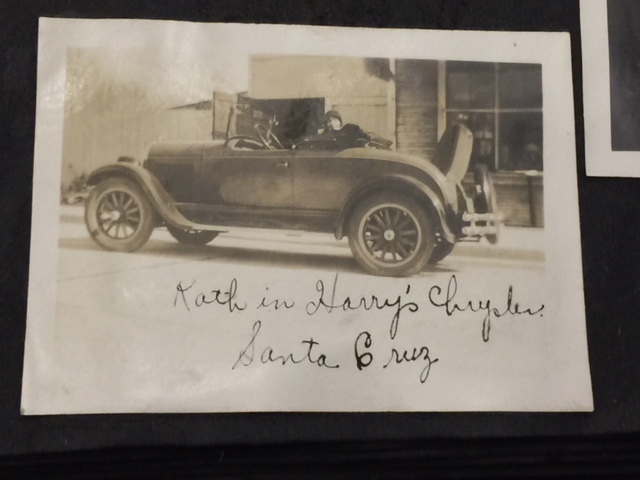 Kath in Harry's Chrysler.
Santa Cruz